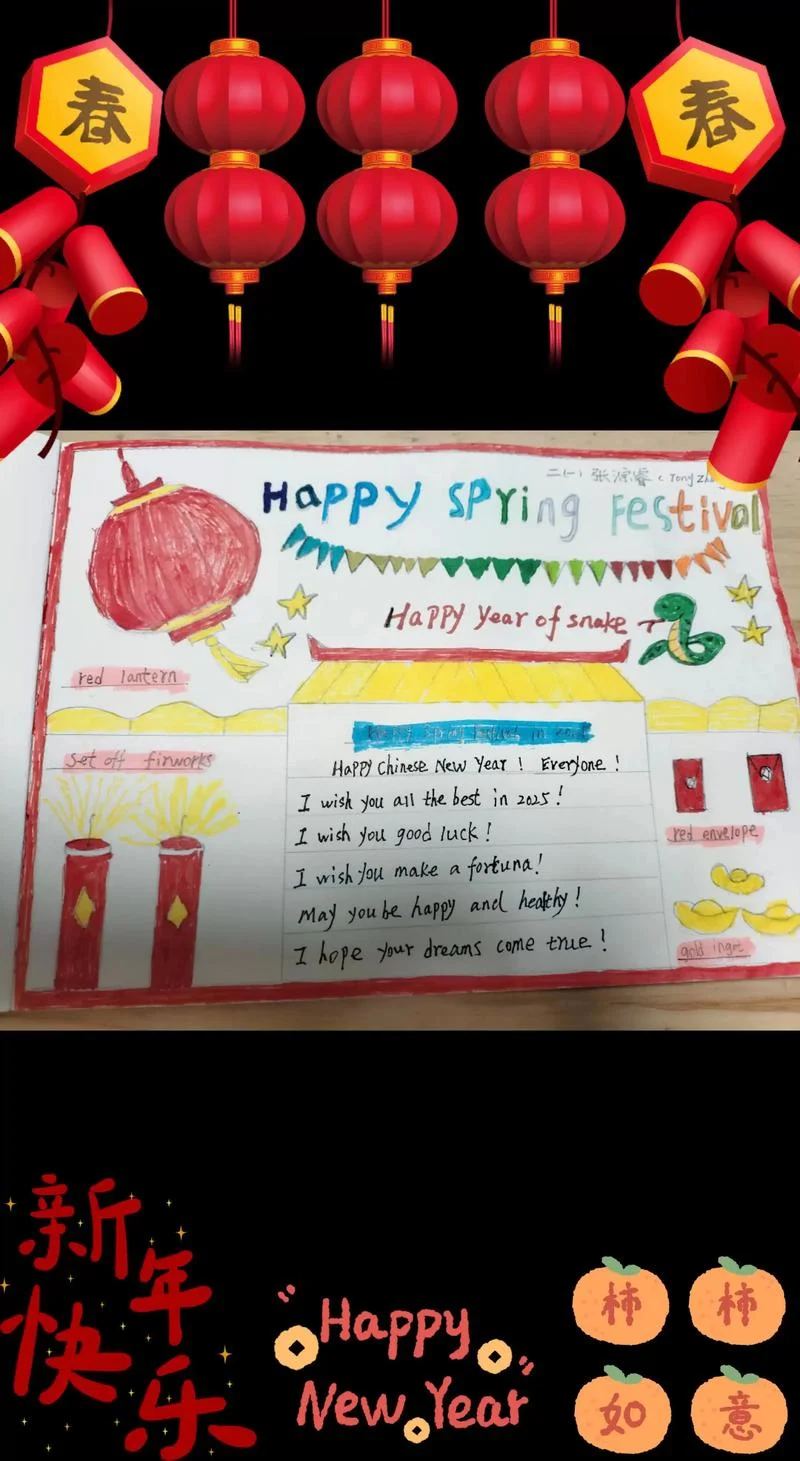 春
春
二(一) 张源睿
Happy Spring Festival
Happy Year of snake
red lantern
set off firworks
Happy Chinese New Year ! Everyone !
I wish you all the best in 2025 !
I wish you good luck !
I wish you make a fortuna!
May you be happy and healthy !
I hope your dreams come true !
red envelope
gold ingot
新年快乐
Happy
New Year
柿柿
如意